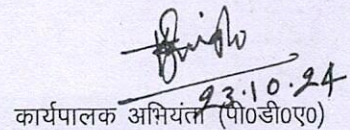 23.10.24
कार्यपालक अभियंता (पी0डी0ए0)